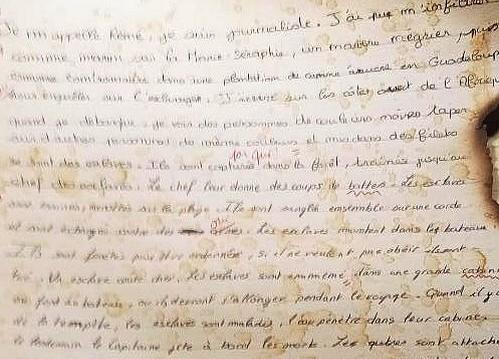 Je m'appelle René, je suis journaliste. J'ai pu m'infiltrer
comme marin sur la Marie-Séraphie, un navire négrier, puis
comme contremaitre dans une plantation de canne à sucre en Guadeloupe
pour enquêter sur l'esclavage. J'arrive sur les côtes ouest de l'Afrique
quand je débarque, je vois des personnes de couleurs noires taper
sur d'autres personnes de même couleurs et
se sont des esclaves. Ils sont capturés dans la forêt, trainés jusqu'au
par qui
chef des esclaves. Le chef leur donne des coups de battes. Les esclaves
sont ensuite sur la plage. Ils sont ensemble sur une corde
et sont échangés contre des armes. Les esclaves montent dans les bateaux
Ils sont pour être si il ne veulent pas obéir ils sont
tué. Un esclave coute cher. Les esclaves sont emmené dans une grande cabine
au fond du bateau, où ils devront s'allonger pendant le voyage. Quand il y a
de la tempête, les esclaves sont malades, l'eau pénètre dans leur cabine.
le lendemain le Capitaine jete à bord les morts. Les autres sont attachés